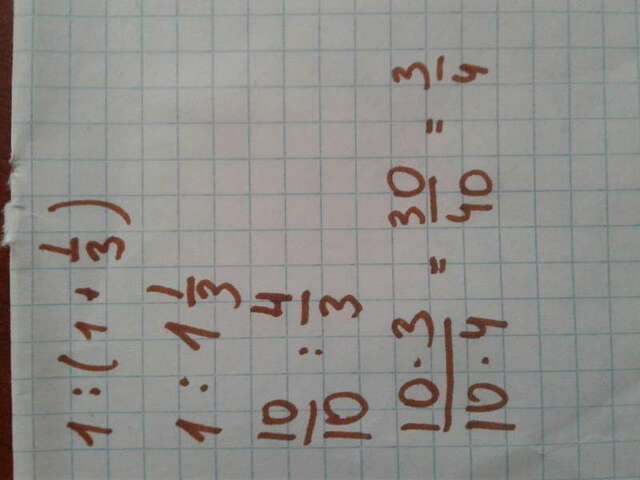 1 : (1 + 1/3)
1 : 1 1/3
10/10 : 4/3
10·3/10·4 = 30/40 = 3/4